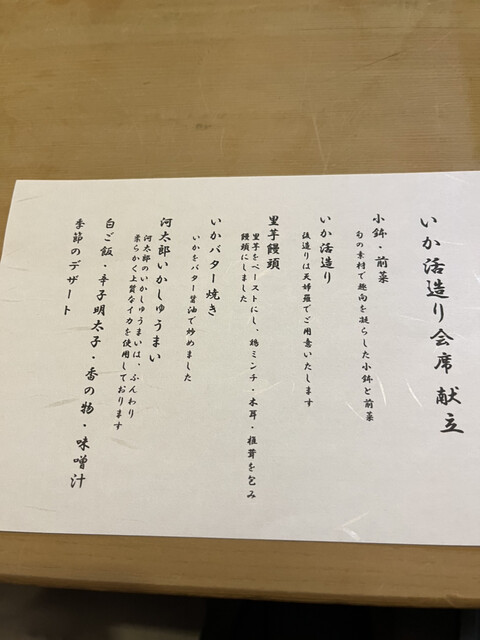 いか活造り会席 献立
小鉢・前菜
旬の素材で趣向を凝らした小鉢と前菜
いか活造り
後造りは天婦羅でご用意いたします
里芋饅頭
里芋をペーストにし、鶏ミンチ・木耳・椎茸を包み
饅頭にしました
いかバター焼き
いかをバター醤油で炒めました
河太郎いかしゅうまい
河太郎のいかしゅうまいは、ふんわり
柔らかく上質なイカを使用しております
白ご飯・辛子明太子・香の物・味噌汁
季節のデザート